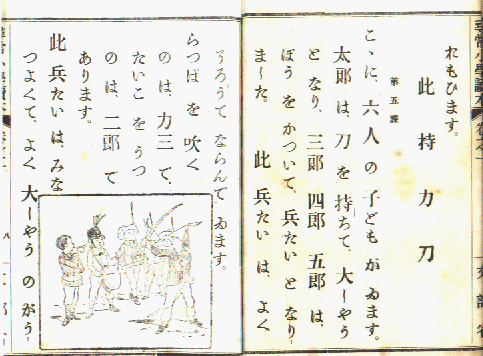 れもひます。
此 持 力 刀
第五課
こゝに、六人 の 子ども が ゐます。
太郎 は、刀 を 持ちて、大しやう
と なり、三郎 四郎 五郎 は、
ぼう を かついて、兵たい と なり
ました。 此 兵たい は、よく
そろうて ならんで ゐます。
らつぱ を 吹く
の は、力三 で、
たいこ を うつ
の は、二郎 で
あります。
此 兵たい は、みな
つよくて、よく 大しやう の がう
八